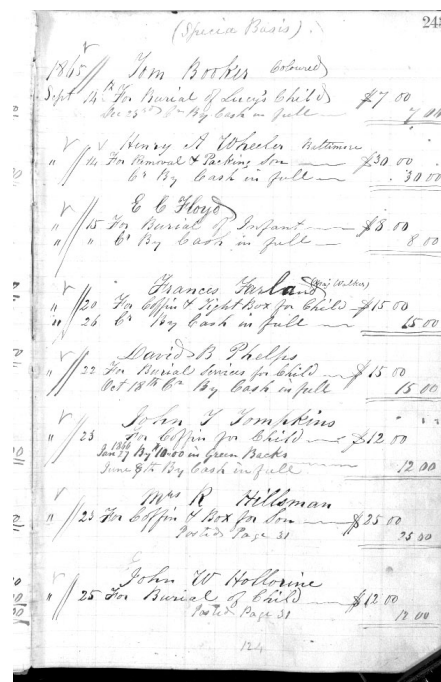 (Special Basis).
243
1865 Tom Booker Coloured
Sept 14th For Burial of Lucy's Child $7 00
Dec 23rd Cr By Cash in full 7 00
Henry A Wheeler Baltimore
" 14 For Removal & Packing Son $30 00
Cr By Cash in full 30 00
E C Floyd
" 15 For Burial of Infant $8 00
" " Cr By Cash in full 8 00
Frances Farland
" 20 For Coffin & Tight Box for Child $15 00
" 26 Cr By Cash in full 15 00
David B Phelps
" 22 For Burial Services for Child $15 00
Oct 18th Cr By Cash in full 15 00
John T Tompkins
" 23 For Coffin for Child $12 00
1866
Jan 27 By $10.00 in Green Backs
June 8th By Cash in full 12 00
Mrs R Hillsman
" 23 For Coffin & Box for Son $25 00
Posted Page 31 25 00
John W Hollorine
" 25 For Burial of Child $12 00
Posted Page 31 12 00
124